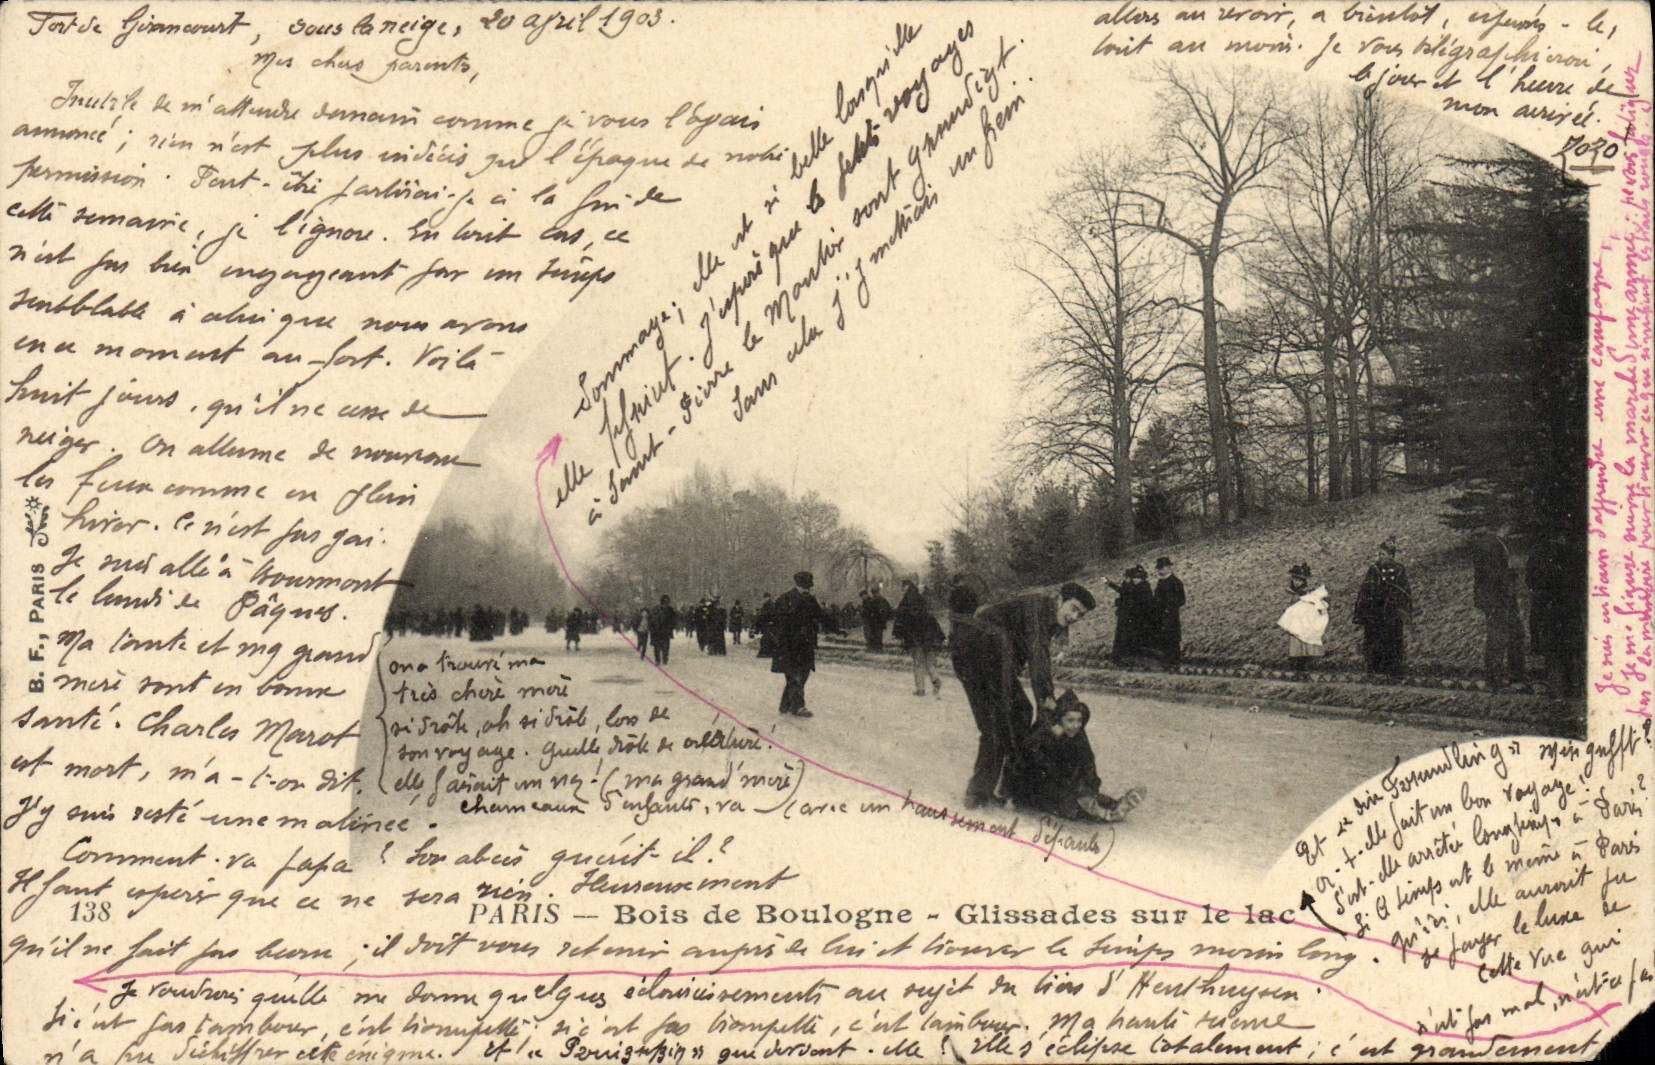 Fort de Girancourt, sous la neige, 20 avril 1903.
Mes chers parents,
Inutile de m'attendre demain comme je vous l'avais
annoncé ; rien n'est plus indécis que l'époque de notre
permission. Peut-être partirai-je à la fin de
cette semaine, je l'ignore. En tout cas, ce
n'est pas bien engageant par un temps
semblable à celui que nous avons
en ce moment au fort. Voilà
huit jours, qu'il ne cesse de
neiger. On allume de nouveau
les feux comme en plein
hiver. Ce n'est pas gai.
Je suis allé à Bourmont
le lundi de Pâques.
Ma tante et ma grand
mère sont en bonne
santé. Charles Marot
est mort, m'a-t-on dit.
J'y suis resté une matinée.
on a trouvé ma
très chère mère
si drôle, oh si drôle, lors de
son voyage. Quelle drôle de
elle faisait un nez ! (ma grand'mère)
chameaux d'enfants, va (avec un haussement d'épaules)
Comment va papa ? Son abcès guérit-il ?
Il faut espérer que ce ne sera rien. Heureusement
138 PARIS — Bois de Boulogne - Glissades sur le lac
qu'il ne fait pas beau ; il doit vous retenir auprès de lui et trouver le temps moins long.
Je voudrais qu'elle me donne quelques éclaircissements au sujet du
Si c'est pas tambour, c'est trompette ; si c'est pas trompette, c'est tambour. Ma haute science
n'a pu déchiffrer cette énigme. Et que devient-elle ? Elle s'éclipse totalement ; c'est grandement
dommage ; elle est si belle lorsqu'elle
elle J'espère que les petits voyages
à Saint-Pierre le Moutier sont grand
Sans cela j'y mettrais un frein.
allons au revoir, à bientôt, espérons-le,
tout au moins. Je vous télégraphierai,
le jour et l'heure de
mon arrivée.
Toto
Je suis en train d'apprendre une campagne ;
je me figure suivre la marche d'une armée ;
B. F., PARIS
Et
a-t-elle fait un bon voyage ?
S'est-elle arrêtée longtemps à Paris ?
Si le temps est le même à Paris
qu'ici, elle aurait pu
se payer le luxe de
cette vue qui
n'est pas mal, n'est-ce pas